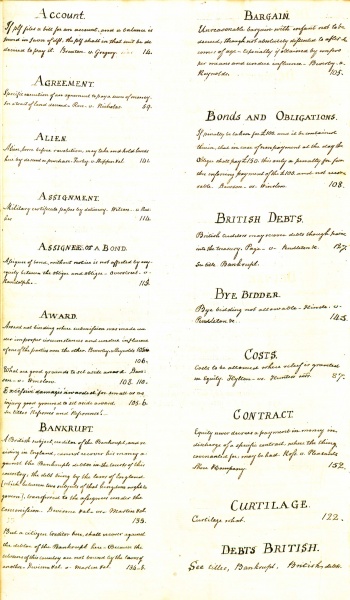 Account.
If plf files a bill for an account, and a balance is
found in favor of deft. the plf shall in that suit be de
creed to pay it. Braxton v. Gregory 14.
Agreement.
Specific execution of an agreement to pay a sum of money,
for a tract of land decreed. Rose v. Nicholas 59.
Alien.
Alien, born before revolution, may take and hold lands
here by devise or purchase. v. 141
Assignment.
Military certificate passes by delivery. Wilson v. Ru
114.
Assignee of a Bond.
Assignee of bond, without notice is not affected by any
equity between the obligor and obligee. v.
Randolph. 113.
Award.
Award not binding where submission was made un
der improper circumstances and undue influence
of one of the parties over the other. Beverley v. Reynolds
106.
What are good grounds to set aside award
v. Winslow 108. 110.
Excessive damages awarded for small or no
injury good ground to set aside award. 105-6.
See titles References and Referrees.
Bankrupt.
A British subject, creditor of the Bankrupt, and re
siding in England, cannot recover his money a
gainst the Bankrupts debtor in the courts of this
country; the debt being by the laws of England
(which between two subjects of that kingdom ought to
govern), transferred to the assignees under the
commission. v. Martin
133.
But a citizen Creditor here, shall recover against
the debtor of the Bankrupt here. Because the
citizens of this country are not bound by the laws of
another. v. Martin 134-5.
Bargain.
Unreasonable bargain with infant not to be
decreed, though not absolutely dissented to after he
comes of age. Especially if obtained by improp
er means and undue influence. Beverley v.
Reynolds. 105.
Bonds and Obligations.
If penalty be taken for £100. and it be contained
therein, that in case of nonpayment at the day the
obligor shall pay £150. this only a penalty for fur
ther securing payment of the £100. and not recov
erable. v. Winslow 108.
British Debts.
British creditors may recover debts though paid
into the treasury. Page v. Pendleton &c. 127.
See title. Bankrupt.
Bye Bidder.
Bye bidding not allowable. Hinde v.
Pendleton &c. 145.
Costs.
Costs to be allowed where relief is granted
in equity. Hylton v. Hunter 87.
Contract.
Equity never decrees a payment in money in
discharge of a specific contract, where the thing
covenanted for may be had. Ross v. Pleasants
Shore & company. 152.
Curtilage.
Curtilage what. 122.
Debts British.
See titles, Bankrupt. British debts.